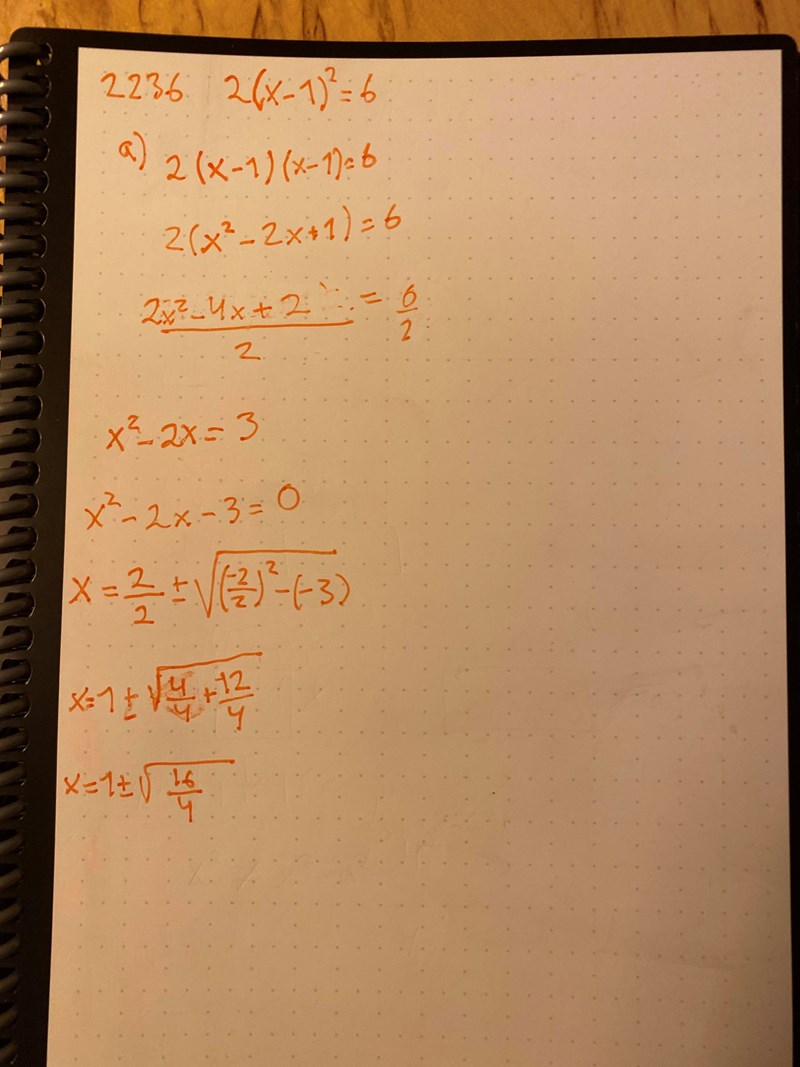 2236 2(x-1)²=6
a) 2(x-1)(x-1)=6
2(x²-2x+1)=6
(2x²-4x+2)/2 = 6/2
x²-2x=3
x²-2x-3=0
x=2/2±√((-2/2)²-(-3))
x=1±√(4/4+12/4)
x=1±√(16/4)